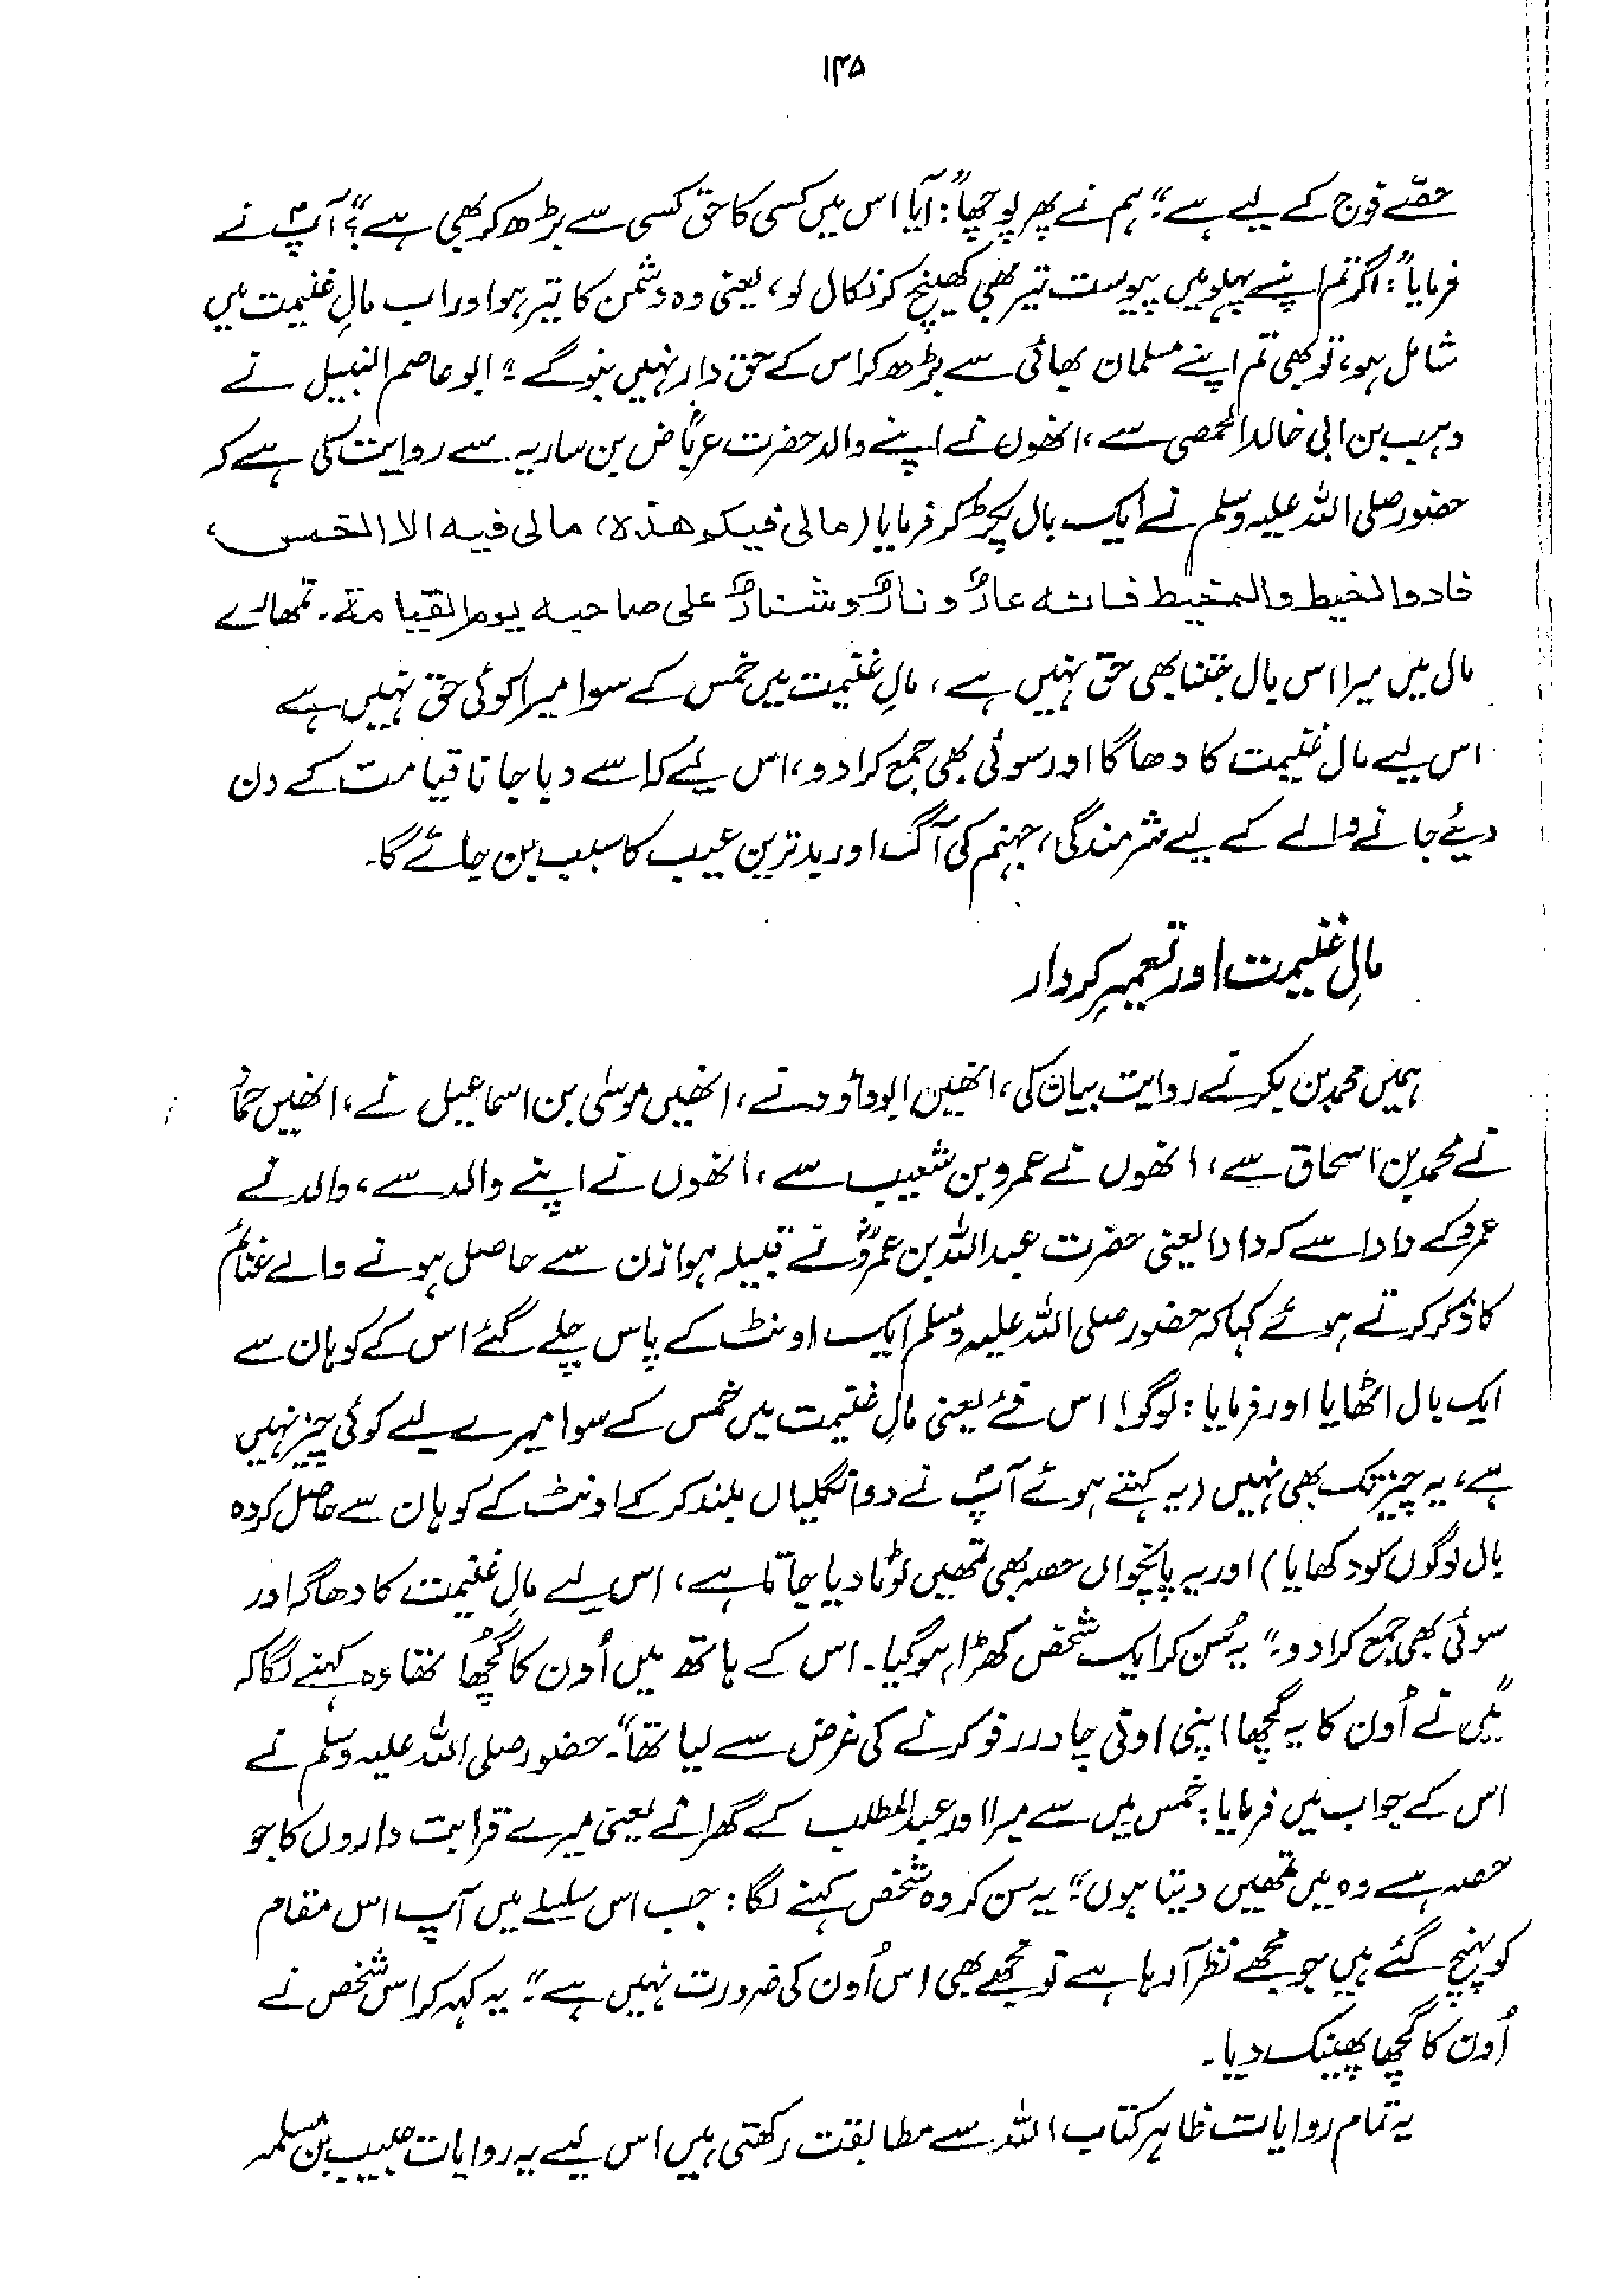 ۱۴۵
حصّے فوج کے لیے ہے“ ہم نے پھر پوچھا:“ آیا اس میں کسی کا حق کسی سے بڑھ کر بھی ہے؟“ آپؐ نے
فرمایا:“ اگر تم اپنے پہلو میں پیوست تیر بھی کھینچ کر نکال لو، یعنی وہ دشمن کا تیر ہو اور اب مالِ غنیمت میں
شامل ہو، تو بھی تم اپنے مسلمان بھائی سے بڑھ کر اس کے حق دار نہیں بنو گے“ ابو عاصم النبیل نے
وہب بن ابی خالد الحمصی سے، انھوں نے اپنے والد حضرت عرباؓض بن ساریہ سے روایت کی ہے کہ
حضور صلی اللہ علیہ وسلم نے ایک بال پکڑ کر فرمایا (مالی فیکم ھذہ، مالی فیہ الا الخمس،
فادوا الخیط والمخیط فانہ عارٌ و نارٌ و شنارٌ علی صاحبہ یوم القیامۃ۔ تمھارے
مال میں میرا اس بال جتنا بھی حق نہیں ہے، مالِ غنیمت میں خمس کے سوا میرا کوئی حق نہیں ہے
اس لیے مال غنیمت کا دھاگا اور سوئی بھی جمع کرا دو، اس لیے کہ اسے دبا جانا قیامت کے دن
دیئے جانے والے کے لیے شرمندگی، جہنم کی آگ اور بدترین عیب کا سبب بن جائے گا۔
مالِ غنیمت اور تعمیرِ کردار
ہمیں محمد بن بکر نے روایت بیان کی، انھیں ابوداؤد نے، انھیں موسٰی بن اسماعیل نے، انھیں حماد
نے محمد بن اسحاق سے، انھوں نے عمرو بن شعیب سے، انھوں نے اپنے والد سے، والد نے
عمرو کے دادا سے کہ دادا یعنی حضرت عبداللہ بن عمروؓ نے قبیلہ ہوازن سے حاصل ہونے والے غنائم
کا ذکر کرتے ہوئے کہا کہ حضور صلی اللہ علیہ وسلم ایک اونٹ کے پاس چلے گئے اس کے کوہان سے
ایک بال اٹھایا اور فرمایا: لوگو! اس فئے یعنی مالِ غنیمت میں خمس کے سوا میرے لیے کوئی چیز نہیں
ہے، یہ چیز تک بھی نہیں (یہ کہتے ہوئے آپؐ نے دو انگلیاں بلند کر کے اونٹ کے کوہان سے حاصل کردہ
بال لوگوں کو دکھایا) اور یہ پانچواں حصہ بھی تمھیں لوٹا دیا جاتا ہے، اس لیے مالِ غنیمت کا دھاگہ اور
سوئی بھی جمع کرا دو۔“ یہ سُن کر ایک شخص کھڑا ہو گیا۔ اس کے ہاتھ میں اُون کا گُچھا تھا وہ کہنے لگا کہ
“میں نے اُون کا یہ گچھا اپنی اونی چادر رفو کرنے کی غرض سے لیا تھا“۔ حضور صلی اللہ علیہ وسلم نے
اس کے جواب میں فرمایا: خمس میں سے میرا اور عبدالمطلب کے گھرانے یعنی میرے قرابت داروں کا جو
حصہ ہے وہ میں تمھیں دیتا ہوں“ یہ سن کر وہ شخص کہنے لگا: جب اس سلسلے میں آپ اس مقام
کو پہنچ گئے ہیں جو مجھے نظر آ رہا ہے تو مجھے بھی اس اُون کی ضرورت نہیں ہے“ یہ کہہ کر اس شخص نے
اُون کا گچھا پھینک دیا۔
یہ تمام روایات ظاہر کتاب اللہ سے مطابقت رکھتی ہیں اس لیے یہ روایات حبیب بن مسلمہ